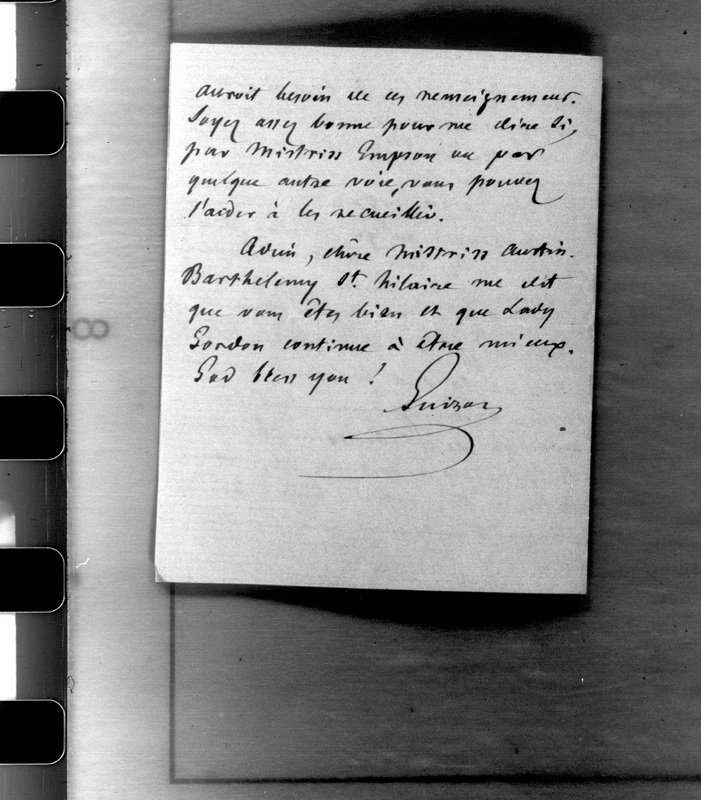 auroit besoin de ces renseignemens.
Soyez assez bonne pour me dire si,
par Mistriss Empson ou par
quelque autre voie, vous pouvez
l'aider à les recueillir.
Adieu, chère Mistriss Austin.
Barthélemy St. hilaire me dit
que vous êtes bien et que Lady
Gordon continue à être mieux.
God bless you !
Guizot
8